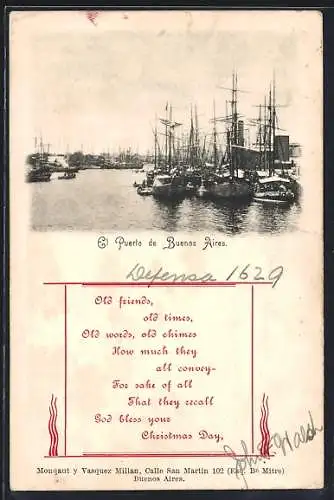 El Puerto de Buenos Aires.
Defensa 1629
Old friends,
old times,
Old words, old chimes
How much they
all convey-
For sake of all
That they recall
God bless your
Christmas Day.
John Walsh
Monqaut y Vasquez Millan, Calle San Martin 102 (Esq. Bé Mitre)
Buenos Aires.